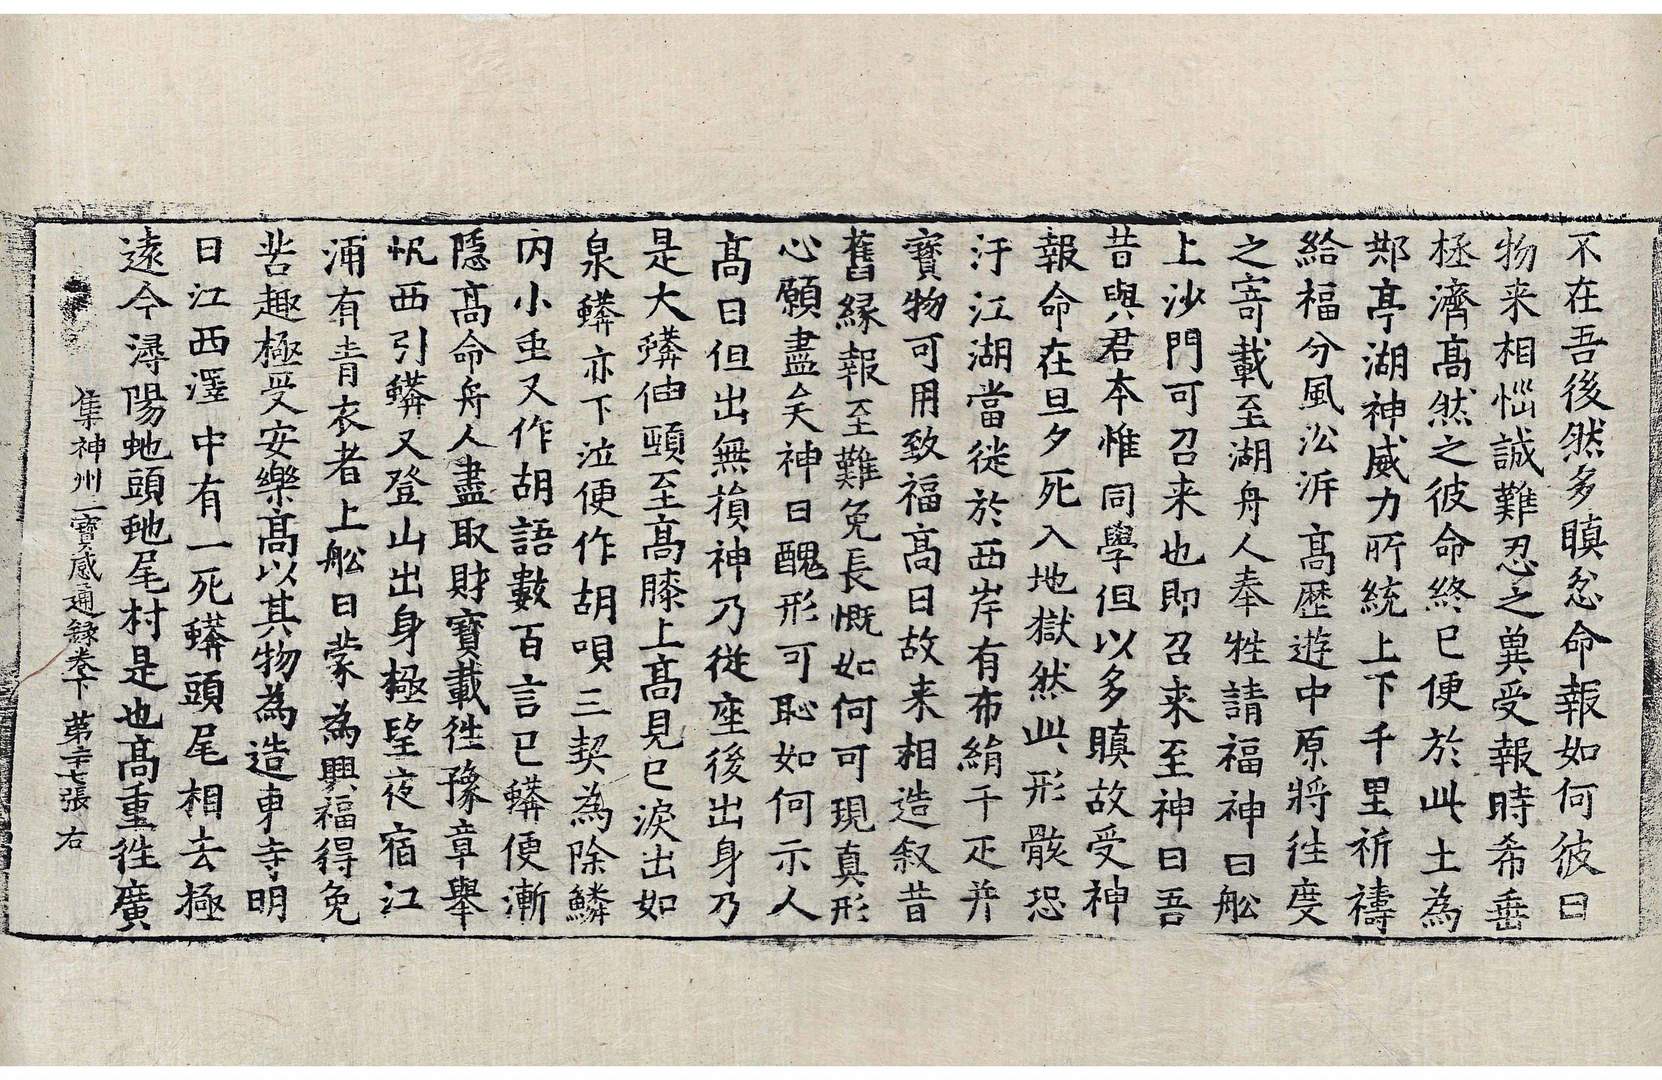 不在吾後然多瞋忿命報如何彼曰
物来相惱誠難忍之異受報時希垂
拯濟髙然之彼命終已便於此土為
䢼亭湖神威力所統上下千里祈禱
給福分風㳂泝髙歷遊中原將往度
之寄載至湖舟人奉牲請福神曰舩
上沙門可召来也即召来至神曰吾
昔與君本惟同學但以多瞋故受神
報命在旦夕死入地獄然此形骸恐
汙江湖當徙於西岸有布絹千疋并
寳物可用致福髙曰故来相造叙昔
舊縁報至難免長慨如何可現真形
心願盡矣神曰醜形可恥如何示人
髙曰但出無損神乃從座後出身乃
是大蟒伷頭至髙膝上髙見已淚出如
泉蟒亦下泣便作胡唄三契為除鱗
内小虫又作胡語數百言已蟒便漸
隱髙命舟人盡取財寳載往豫章舉
帆西引蟒又登山出身極望夜宿江
浦有青衣者上舩曰蒙為興福得免
苦趣極受安樂髙以其物為造東寺明
日江西澤中有一死蟒頭尾相去極
遠今潯陽虵頭虵尾村是也髙重往廣
集神州三寳感通録卷下 第二十七張 右